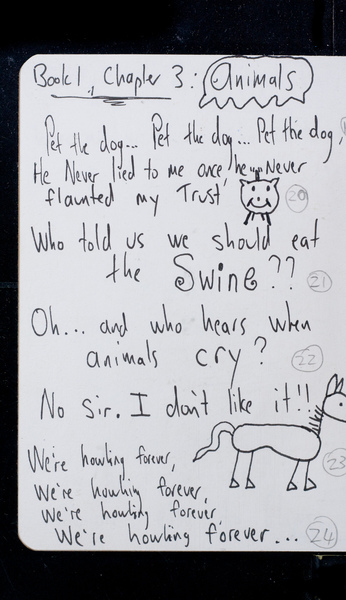 Book 1, Chapter 3: Animals
Pet the dog... Pet the dog... Pet the dog,
He Never lied to me once, he Never
flaunted my Trust
20
Who told us we should eat
the Swine??
21
Oh... and who hears when
animals cry?
22
No Sir. I don't like it!!
23
We're howling forever,
We're howling forever,
We're howling forever,
We're howling forever...
24